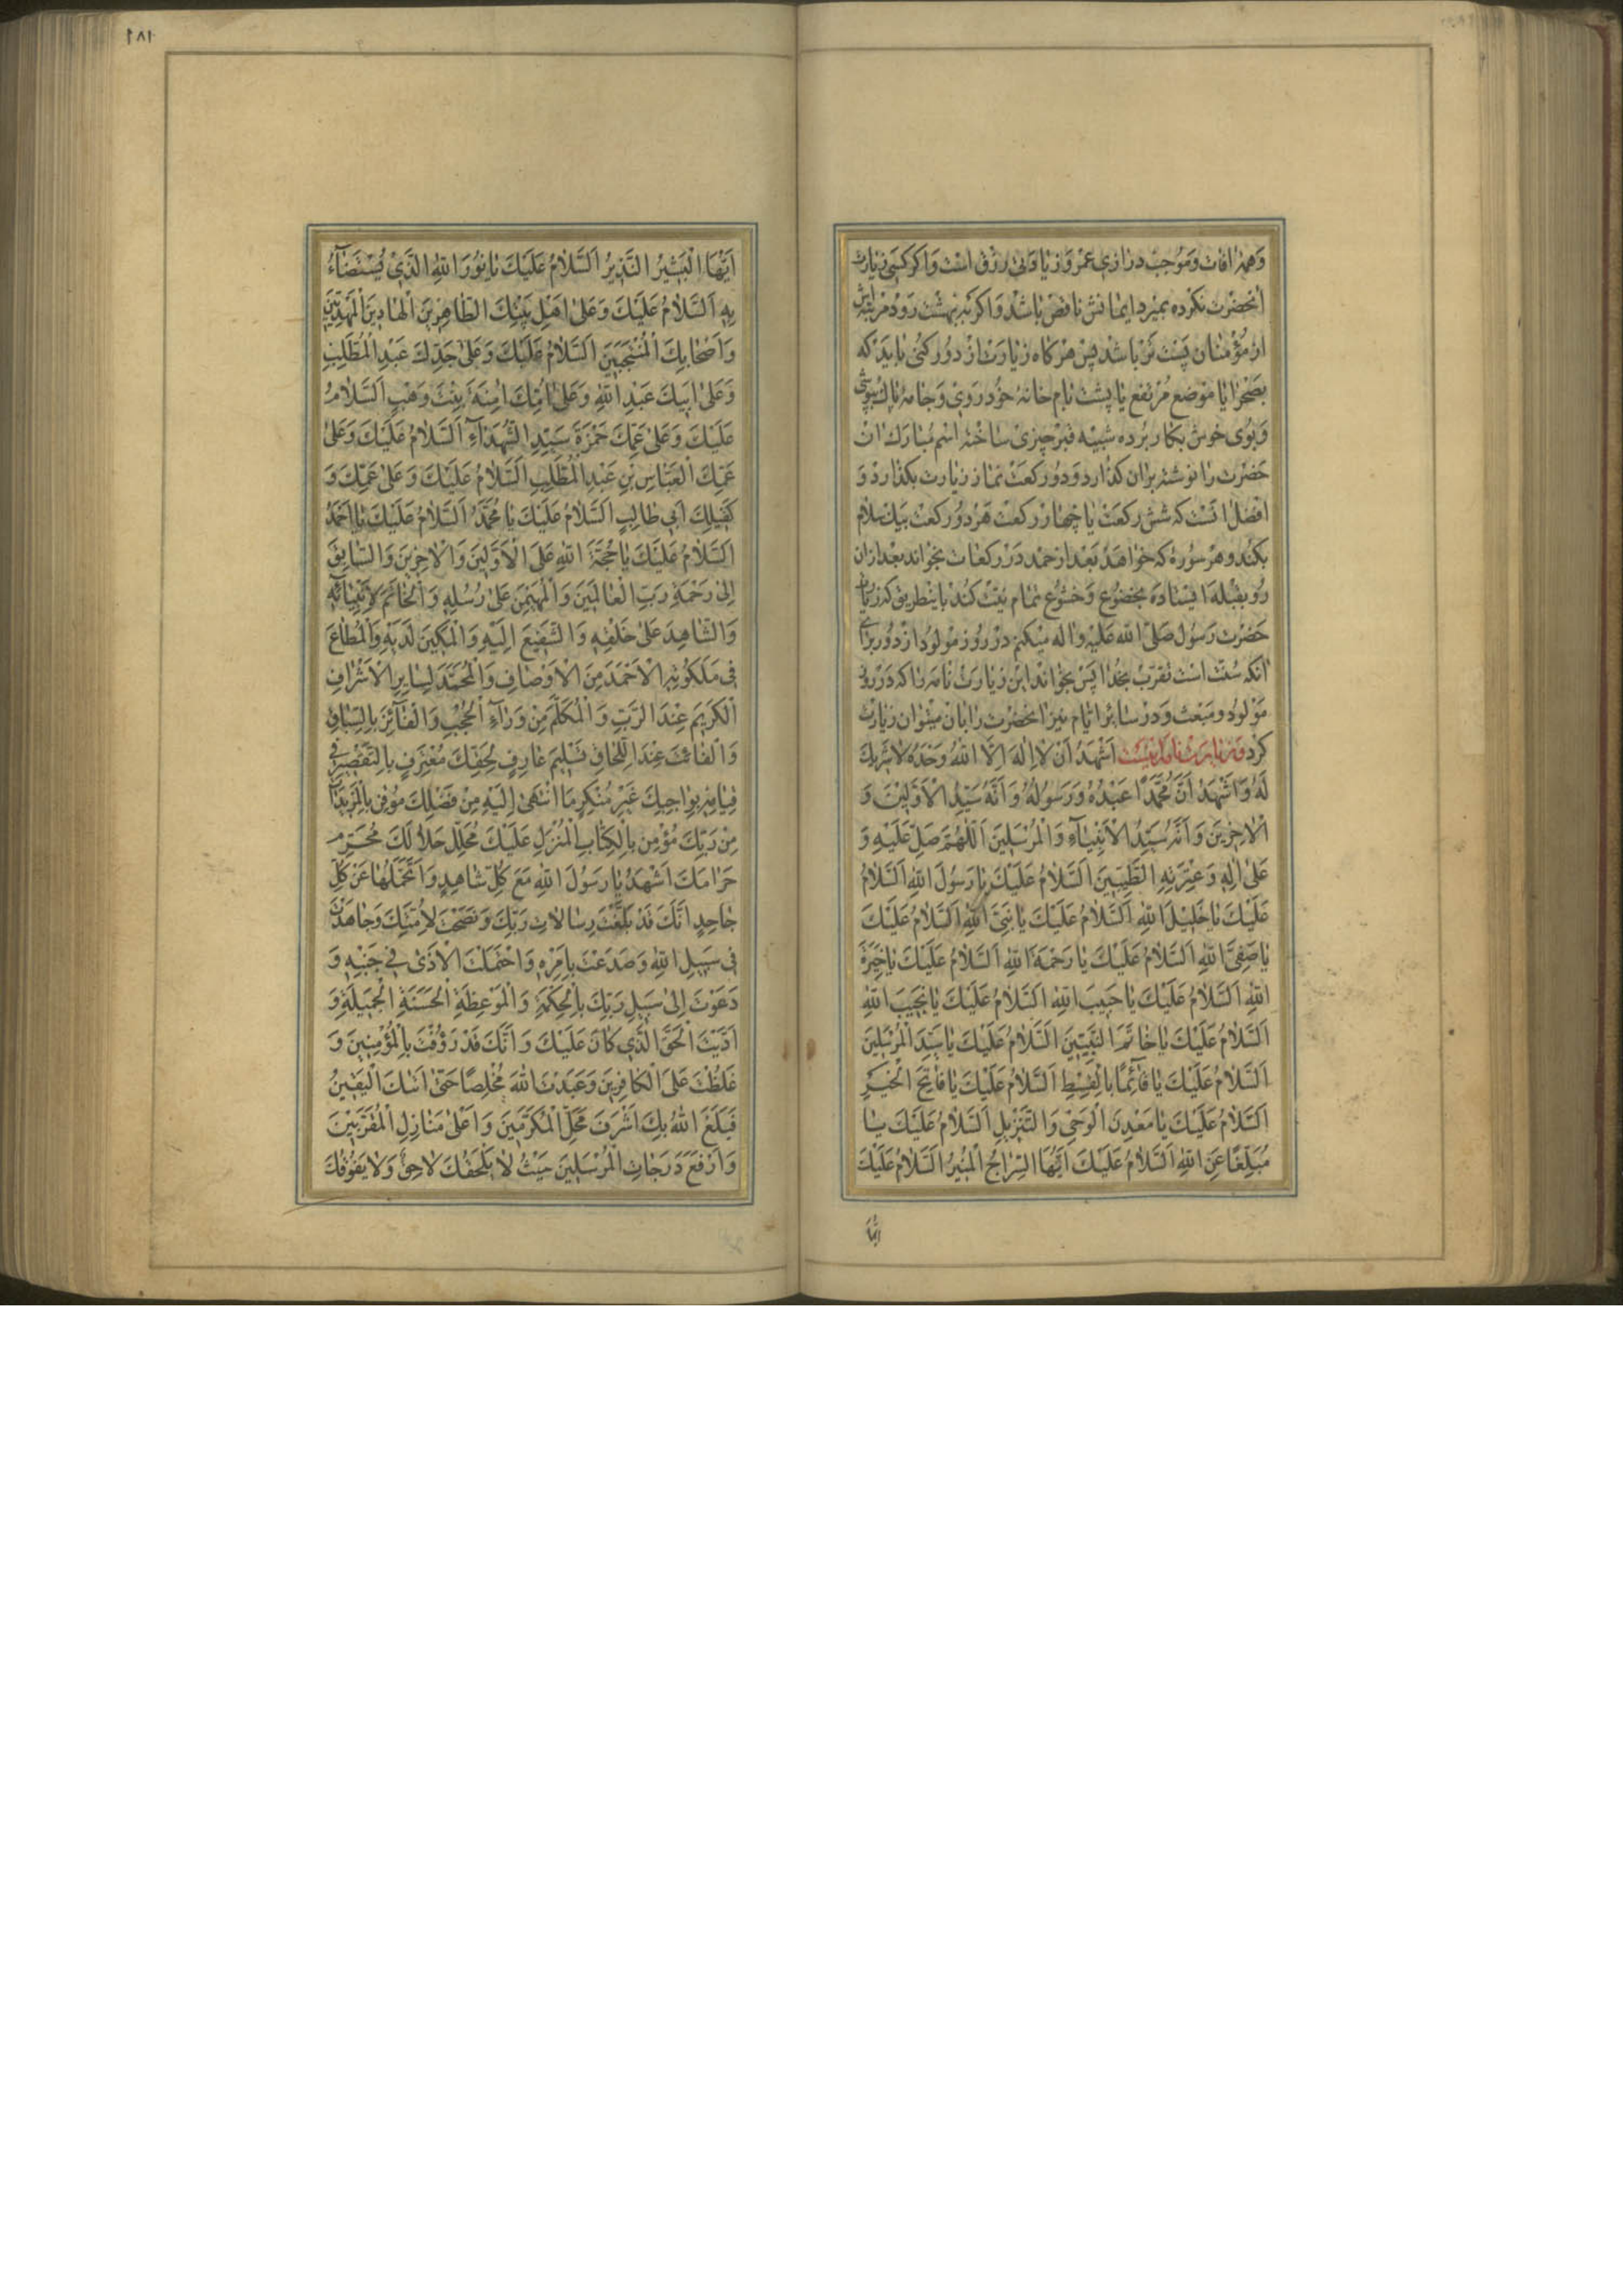 وَهمهٔ افات و موجب درازی عمر و زیادتی رزق است و اگر کسی زیارت
انحضرت نکرده بمیرد ایمانش ناقص باشد و اگر به بهشت رود مرتبه‌اش
از مؤمنان پست تر باشد پس هر کاه زیارت از دور کنی باید که
بصحرا یا موضع مرتفع یا پشت بام خانهٔ خود روی و جامهٔ پاک بپوشی
و بوی خوش بکار برده شبیه قبر چیزی ساخته اسم مبارک ان
حضرت را نوشته بران کذارد و دو رکعت نماز زیارت بکذارد و
افضل انست که شش رکعت یا چهار رکعت هر دو رکعت بیک سلام
بکند و هر سوره که خواهد بعد از حمد در رکعات بخواند بعد ازان
رو بقبله ایستاده بخضوع و خشوع تمام نیت کند باینطریق که زیارت
حضرت رسول صلی الله علیه و اله میکنم در روز مولود از دور برای
انکه سنت است تقرب بخدا پس بخواند این زیارت نامه را که در روز
مولود و مبعث و در سائر ایام نیز انحضرت را بان میتوان زیارت
کرد و زیارت نامه اینست اَشْهَدُ اَنْ لا اِلٰهَ اِلَّا اللهُ وَحْدَهُ لا شَرِیكَ
لَهُ وَاَشْهَدُ اَنَّ مُحَمَّدًا عَبْدُهُ وَرَسُولُهُ وَاَنَّهُ سَیِّدُ الْاَوَّلِینَ وَ
الْاٰخِرِینَ وَاَنَّهُ سَیِّدُ الْاَنْبِیَآءِ وَالْمُرْسَلِینَ اَللّٰهُمَّ صَلِّ عَلَیْهِ وَ
عَلیٰ اٰلِهِ وَعِتْرَتِهِ الطَّیِّبِینَ اَلسَّلامُ عَلَیْكَ یٰا رَسُولَ اللهِ اَلسَّلامُ
عَلَیْكَ یٰا خَلِیلَ اللهِ اَلسَّلامُ عَلَیْكَ یٰا نَبِیَّ اللهِ اَلسَّلامُ عَلَیْكَ
یٰا صَفِیَّ اللهِ اَلسَّلامُ عَلَیْكَ یٰا رَحْمَةَ اللهِ اَلسَّلامُ عَلَیْكَ یٰا خِیَرَةَ
اللهِ اَلسَّلامُ عَلَیْكَ یٰا حَبِیبَ اللهِ اَلسَّلامُ عَلَیْكَ یٰا نَجِیبَ اللهِ
اَلسَّلامُ عَلَیْكَ یٰا خٰاتَمَ النَّبِیِّینَ اَلسَّلامُ عَلَیْكَ یٰا سَیِّدَ الْمُرْسَلِینَ
اَلسَّلامُ عَلَیْكَ یٰا قٰآئِمًا بِالْقِسْطِ اَلسَّلامُ عَلَیْكَ یٰا فٰاتِحَ الْخَیْرِ
اَلسَّلامُ عَلَیْكَ یٰا مَعْدِنَ الْوَحْیِ وَالتَّنْزِیلِ اَلسَّلامُ عَلَیْكَ یٰا
مُبَلِّغًا عَنِ اللهِ اَلسَّلامُ عَلَیْكَ اَیُّهَا السِّرٰاجُ الْمُنِیرُ اَلسَّلامُ عَلَیْكَ
ایّها
۱۸۱
اَیُّهَا الْبَشِیرُ النَّذِیرُ اَلسَّلامُ عَلَیْكَ یٰا نُورَ اللهِ الَّذِی یُسْتَضٰآءُ
بِهِ اَلسَّلامُ عَلَیْكَ وَعَلیٰ اَهْلِ بَیْتِكَ الطّٰاهِرِینَ الْهٰادِینَ الْمَهْدِیِّینَ
وَاَصْحٰابِكَ الْمُنْتَجَبِینَ اَلسَّلامُ عَلَیْكَ وَعَلیٰ جَدِّكَ عَبْدِ الْمُطَّلِبِ
وَعَلیٰ اَبِیكَ عَبْدِ اللهِ وَعَلیٰ اُمِّكَ اٰمِنَةَ بِنْتِ وَهْبٍ اَلسَّلامُ
عَلَیْكَ وَعَلیٰ عَمِّكَ حَمْزَةَ سَیِّدِ الشُّهَدٰآءِ اَلسَّلامُ عَلَیْكَ وَعَلیٰ
عَمِّكَ الْعَبّٰاسِ بْنِ عَبْدِ الْمُطَّلِبِ اَلسَّلامُ عَلَیْكَ وَعَلیٰ عَمِّكَ وَ
كَفِیلِكَ اَبِی طٰالِبٍ اَلسَّلامُ عَلَیْكَ یٰا مُحَمَّدُ اَلسَّلامُ عَلَیْكَ یٰا اَحْمَدُ
اَلسَّلامُ عَلَیْكَ یٰا حُجَّةَ اللهِ عَلَی الْاَوَّلِینَ وَالْاٰخِرِینَ وَالسّٰابِقَ
اِلیٰ رَحْمَةِ رَبِّ الْعٰالَمِینَ وَالْمُهَیْمِنَ عَلیٰ رُسُلِهِ وَالْخٰاتَمَ لِاَنْبِیٰآئِهِ
وَالشّٰاهِدَ عَلیٰ خَلْقِهِ وَالشَّفِیعَ اِلَیْهِ وَالْمَكِینَ لَدَیْهِ وَالْمُطٰاعَ
فِی مَلَكُوتِهِ الْاَحْمَدَ مِنَ الْاَوْصٰافِ وَالْمُحَمَّدَ لِسٰایِرِ الْاَشْرٰافِ
الْكَرِیمَ عِنْدَ الرَّبِّ وَالْمُكَلَّمَ مِنْ وَرٰآءِ الْحُجُبِ وَالْفٰآئِزَ بِالسِّبٰاقِ
وَالْفٰائِتَ عِنْدَ اللِّحٰاقِ تَسْلِیمَ عٰارِفٍ بِحَقِّكَ مُعْتَرِفٍ بِالتَّقْصِیرِ فِی
قِیٰامِهِ بِوٰاجِبِكَ غَیْرِ مُنْكِرٍ مَا انْتَهیٰ اِلَیْهِ مِنْ فَضْلِكَ مُوقِنٍ بِالْمَزِیدٰاتِ
مِنْ رَبِّكَ مُؤْمِنٍ بِالْكِتٰابِ الْمُنْزَلِ عَلَیْكَ مُحَلِّلٍ حَلالَكَ مُحَرِّمٍ
حَرٰامَكَ اَشْهَدُ یٰا رَسُولَ اللهِ مَعَ كُلِّ شٰاهِدٍ وَاَتَحَمَّلُهٰا عَنْ كُلِّ
جٰاحِدٍ اَنَّكَ قَدْ بَلَّغْتَ رِسٰالاتِ رَبِّكَ وَنَصَحْتَ لِاُمَّتِكَ وَجٰاهَدْتَ
فِی سَبِیلِ اللهِ وَصَدَعْتَ بِاَمْرِهِ وَاحْتَمَلْتَ الْاَذیٰ فِی جَنْبِهِ وَ
دَعَوْتَ اِلیٰ سَبِیلِ رَبِّكَ بِالْحِكْمَةِ وَالْمَوْعِظَةِ الْحَسَنَةِ الْجَمِیلَةِ وَ
اَدَّیْتَ الْحَقَّ الَّذِی كٰانَ عَلَیْكَ وَاَنَّكَ قَدْ رَؤُفْتَ بِالْمُؤْمِنِینَ وَ
غَلُظْتَ عَلَی الْكٰافِرِینَ وَعَبَدْتَ اللهَ مُخْلِصًا حَتّیٰ اَتٰیكَ الْیَقِینُ
فَبَلَغَ اللهُ بِكَ اَشْرَفَ مَحَلِّ الْمُكَرَّمِینَ وَاَعْلیٰ مَنٰازِلِ الْمُقَرَّبِینَ
وَاَرْفَعَ دَرَجٰاتِ الْمُرْسَلِینَ حَیْثُ لا یَلْحَقُكَ لاحِقٌ وَلا یَفُوقُكَ